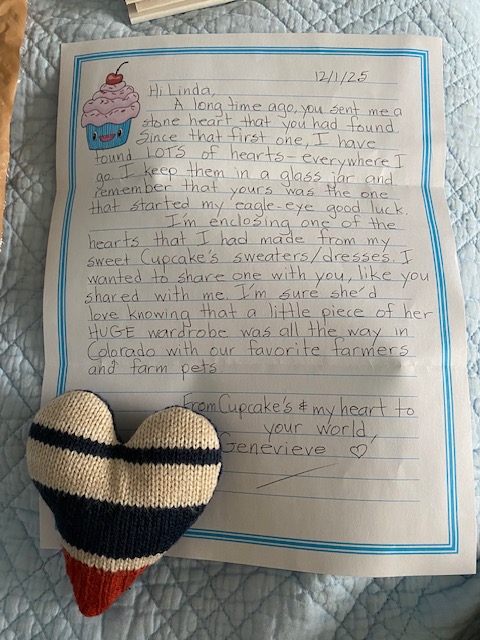 12/1/25
Hi Linda,
A long time ago, you sent me a
stone heart that you had found.
Since that first one, I have
found LOTS of hearts - everywhere I
go. I keep them in a glass jar and
remember that yours was the one
that started my eagle-eye good luck.
I'm enclosing one of the
hearts that I had made from my
sweet Cupcake's sweaters/dresses. I
wanted to share one with you, like you
shared with me. I'm sure she'd
love knowing that a little piece of her
HUGE wardrobe was all the way in
Colorado with our favorite farmers
and farm pets
From Cupcake's & my heart to
your world,
Genevieve ♡